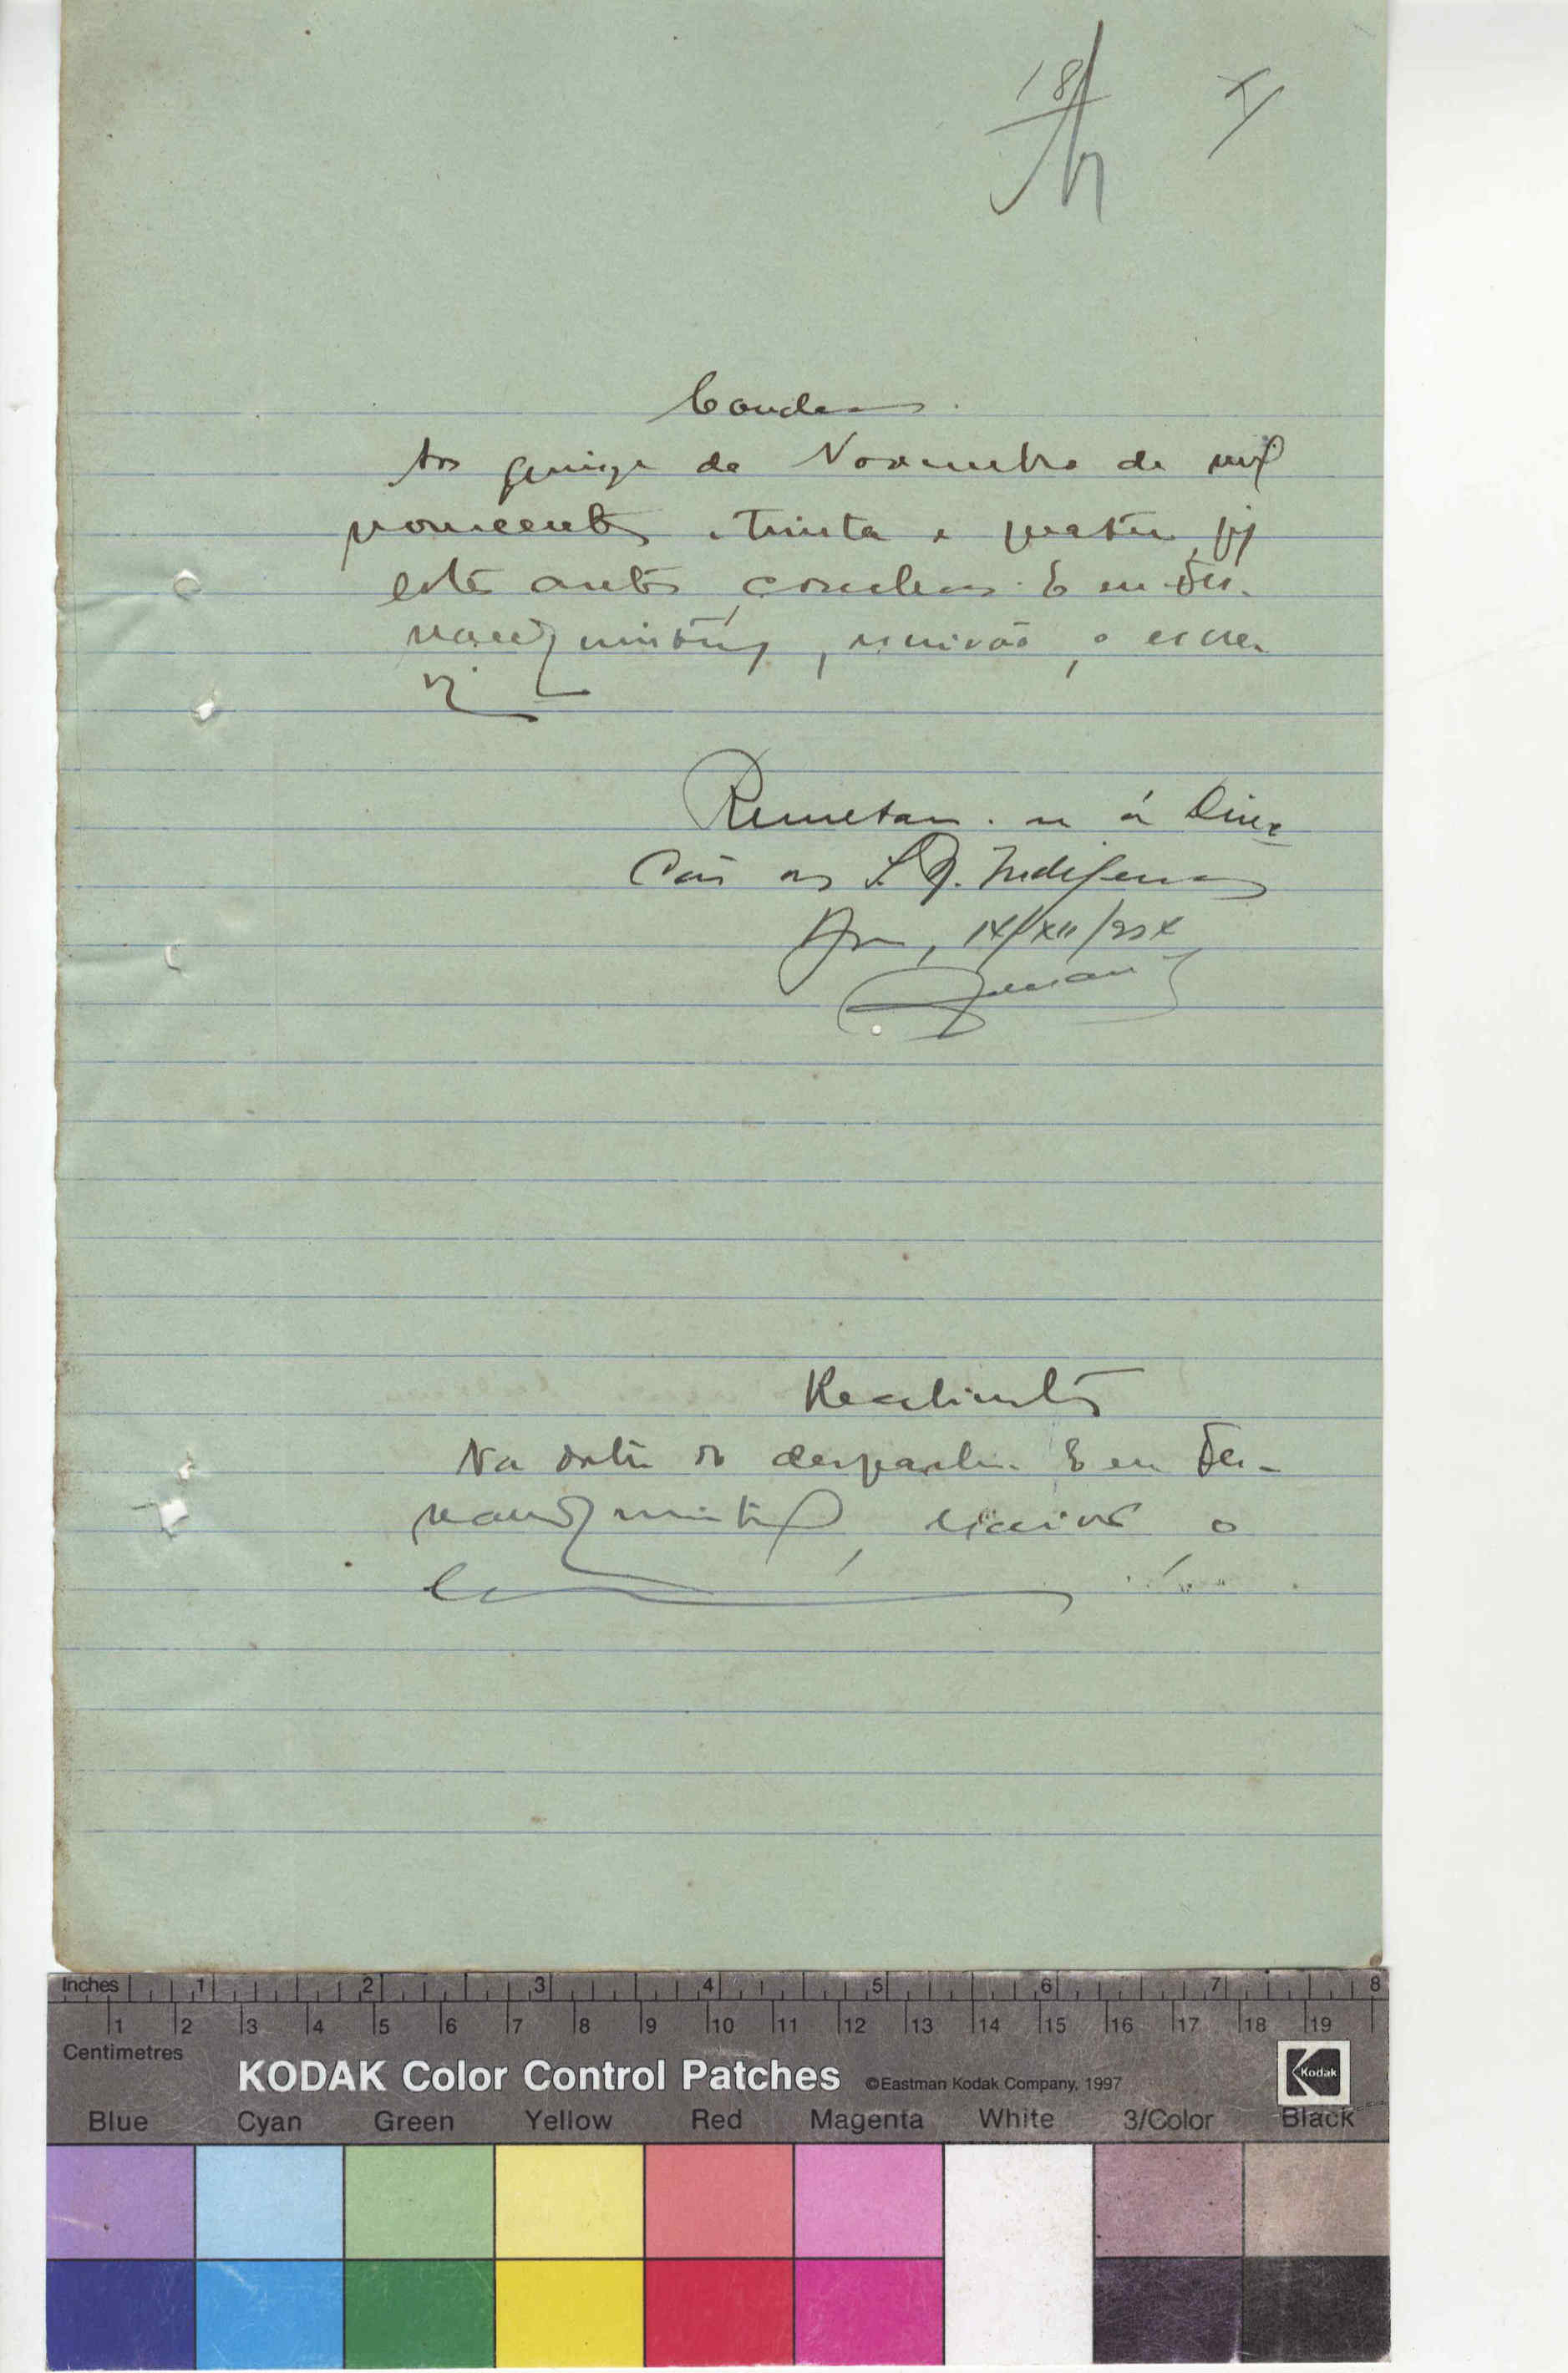 18
Conclusos.
Aos quinze de Novembro de mil
novecentos e trinta e quatro, fiz
estes autos conclusos. E eu Fer-
nando, escrivão, o escre-
vi
Remetam-se á Direc
ção dos S. N. Indigenas
14/XII/934
Recebimento
Na data do despacho. E eu Fer-
nando, escrivão, o
Inches 1 2 3 4 5 6 7 8
1 2 3 4 5 6 7 8 9 10 11 12 13 14 15 16 17 18 19
Centimetres
KODAK Color Control Patches ©Eastman Kodak Company, 1997 Kodak
Blue Cyan Green Yellow Red Magenta White 3/Color Black